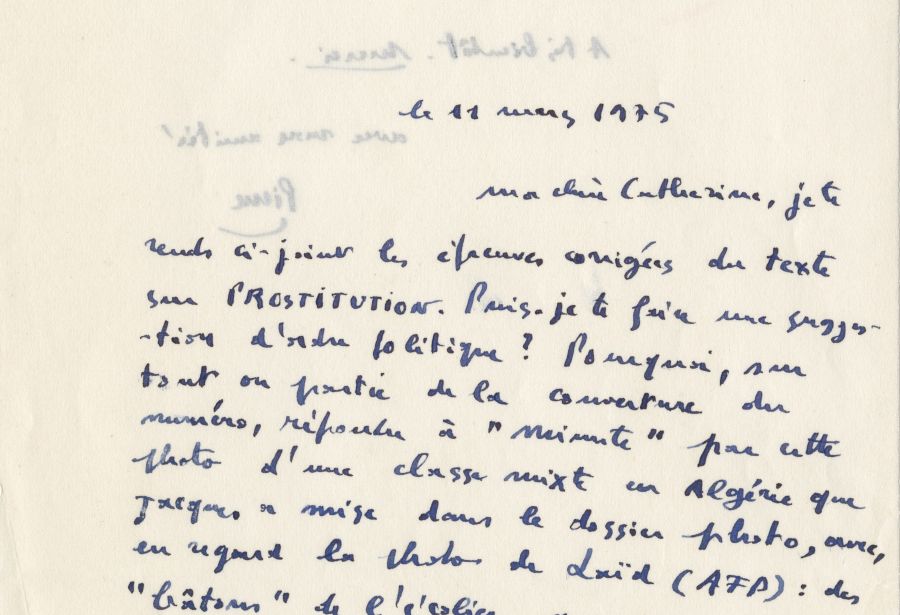 le 11 mars 1975
ma chère Catherine, je te
rends ci-joint les épreuves corrigées du texte
sur PROSTITUTION. Puis-je te faire une sugges-
-tion d'ordre politique ? Pourquoi, sur
tout ou partie de la couverture du
numéro, répondre à "Minute" par cette
photo d'une classe mixte en Algérie que
Jacques a mise dans le dossier photo, avec,
en regard la photo de Laïd (AFP) : des
"bâtons" de l'
A très bientôt. Merci.
avec mon amitié
Pierre